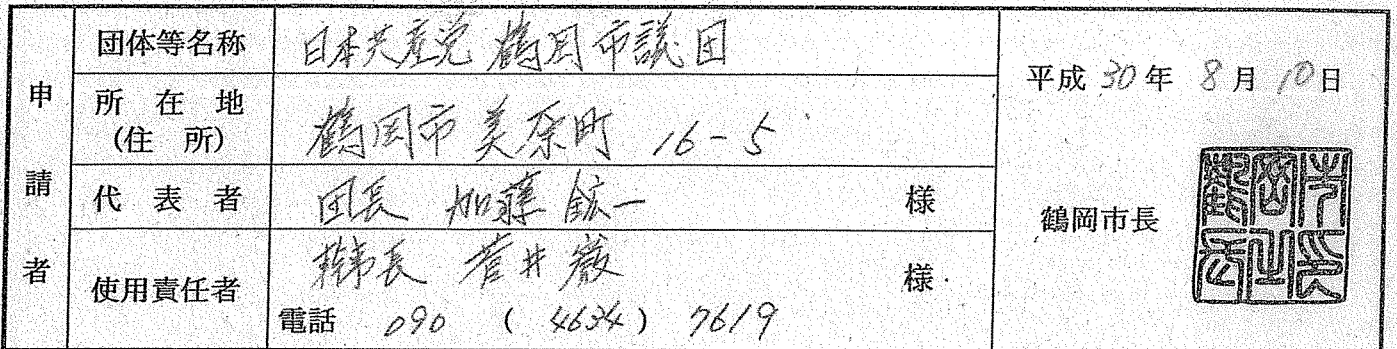 申請者
団体等名称 日本共産党 鶴岡市議団
所在地
(住所)
鶴岡市 美原町 16-5
代表者 団長 加藤 鉱一 様
使用責任者 幹事長 菅井 巌 様
電話 090 ( 4634 ) 7619
平成 30年 8月 10日
鶴岡市長